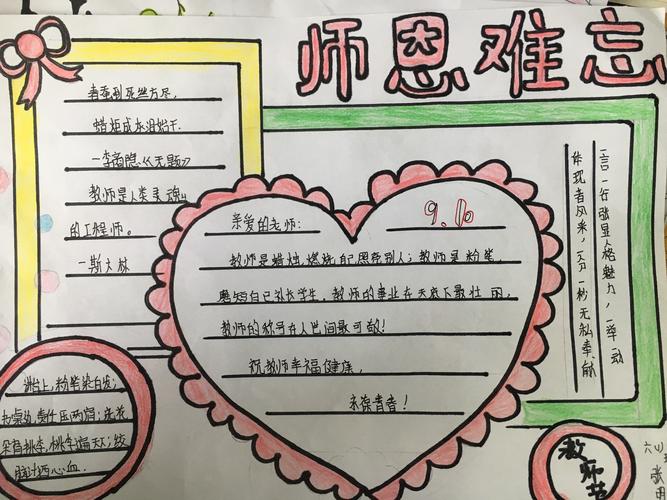 师恩难忘
春蚕到死丝方尽,
蜡炬成灰泪始干.
—李商隐《无题》
教师是人类灵魂
的工程师。
—斯大林
亲爱的老师:
9.10
教师是蜡烛,燃烧自己照亮别人;教师是粉笔,
磨短自己补长学生,教师的事业在天底下最壮丽,
教师的称号在人世间最可敬!
祝教师幸福健康,
永葆青春!
一言一行张显人格魅力,一举一动
体现着风采,一分一秒无私奉献
讲台上,粉笔染白发;
责任压两肩;
桃李遍天下;绞
脑汁洒心血.
教师节